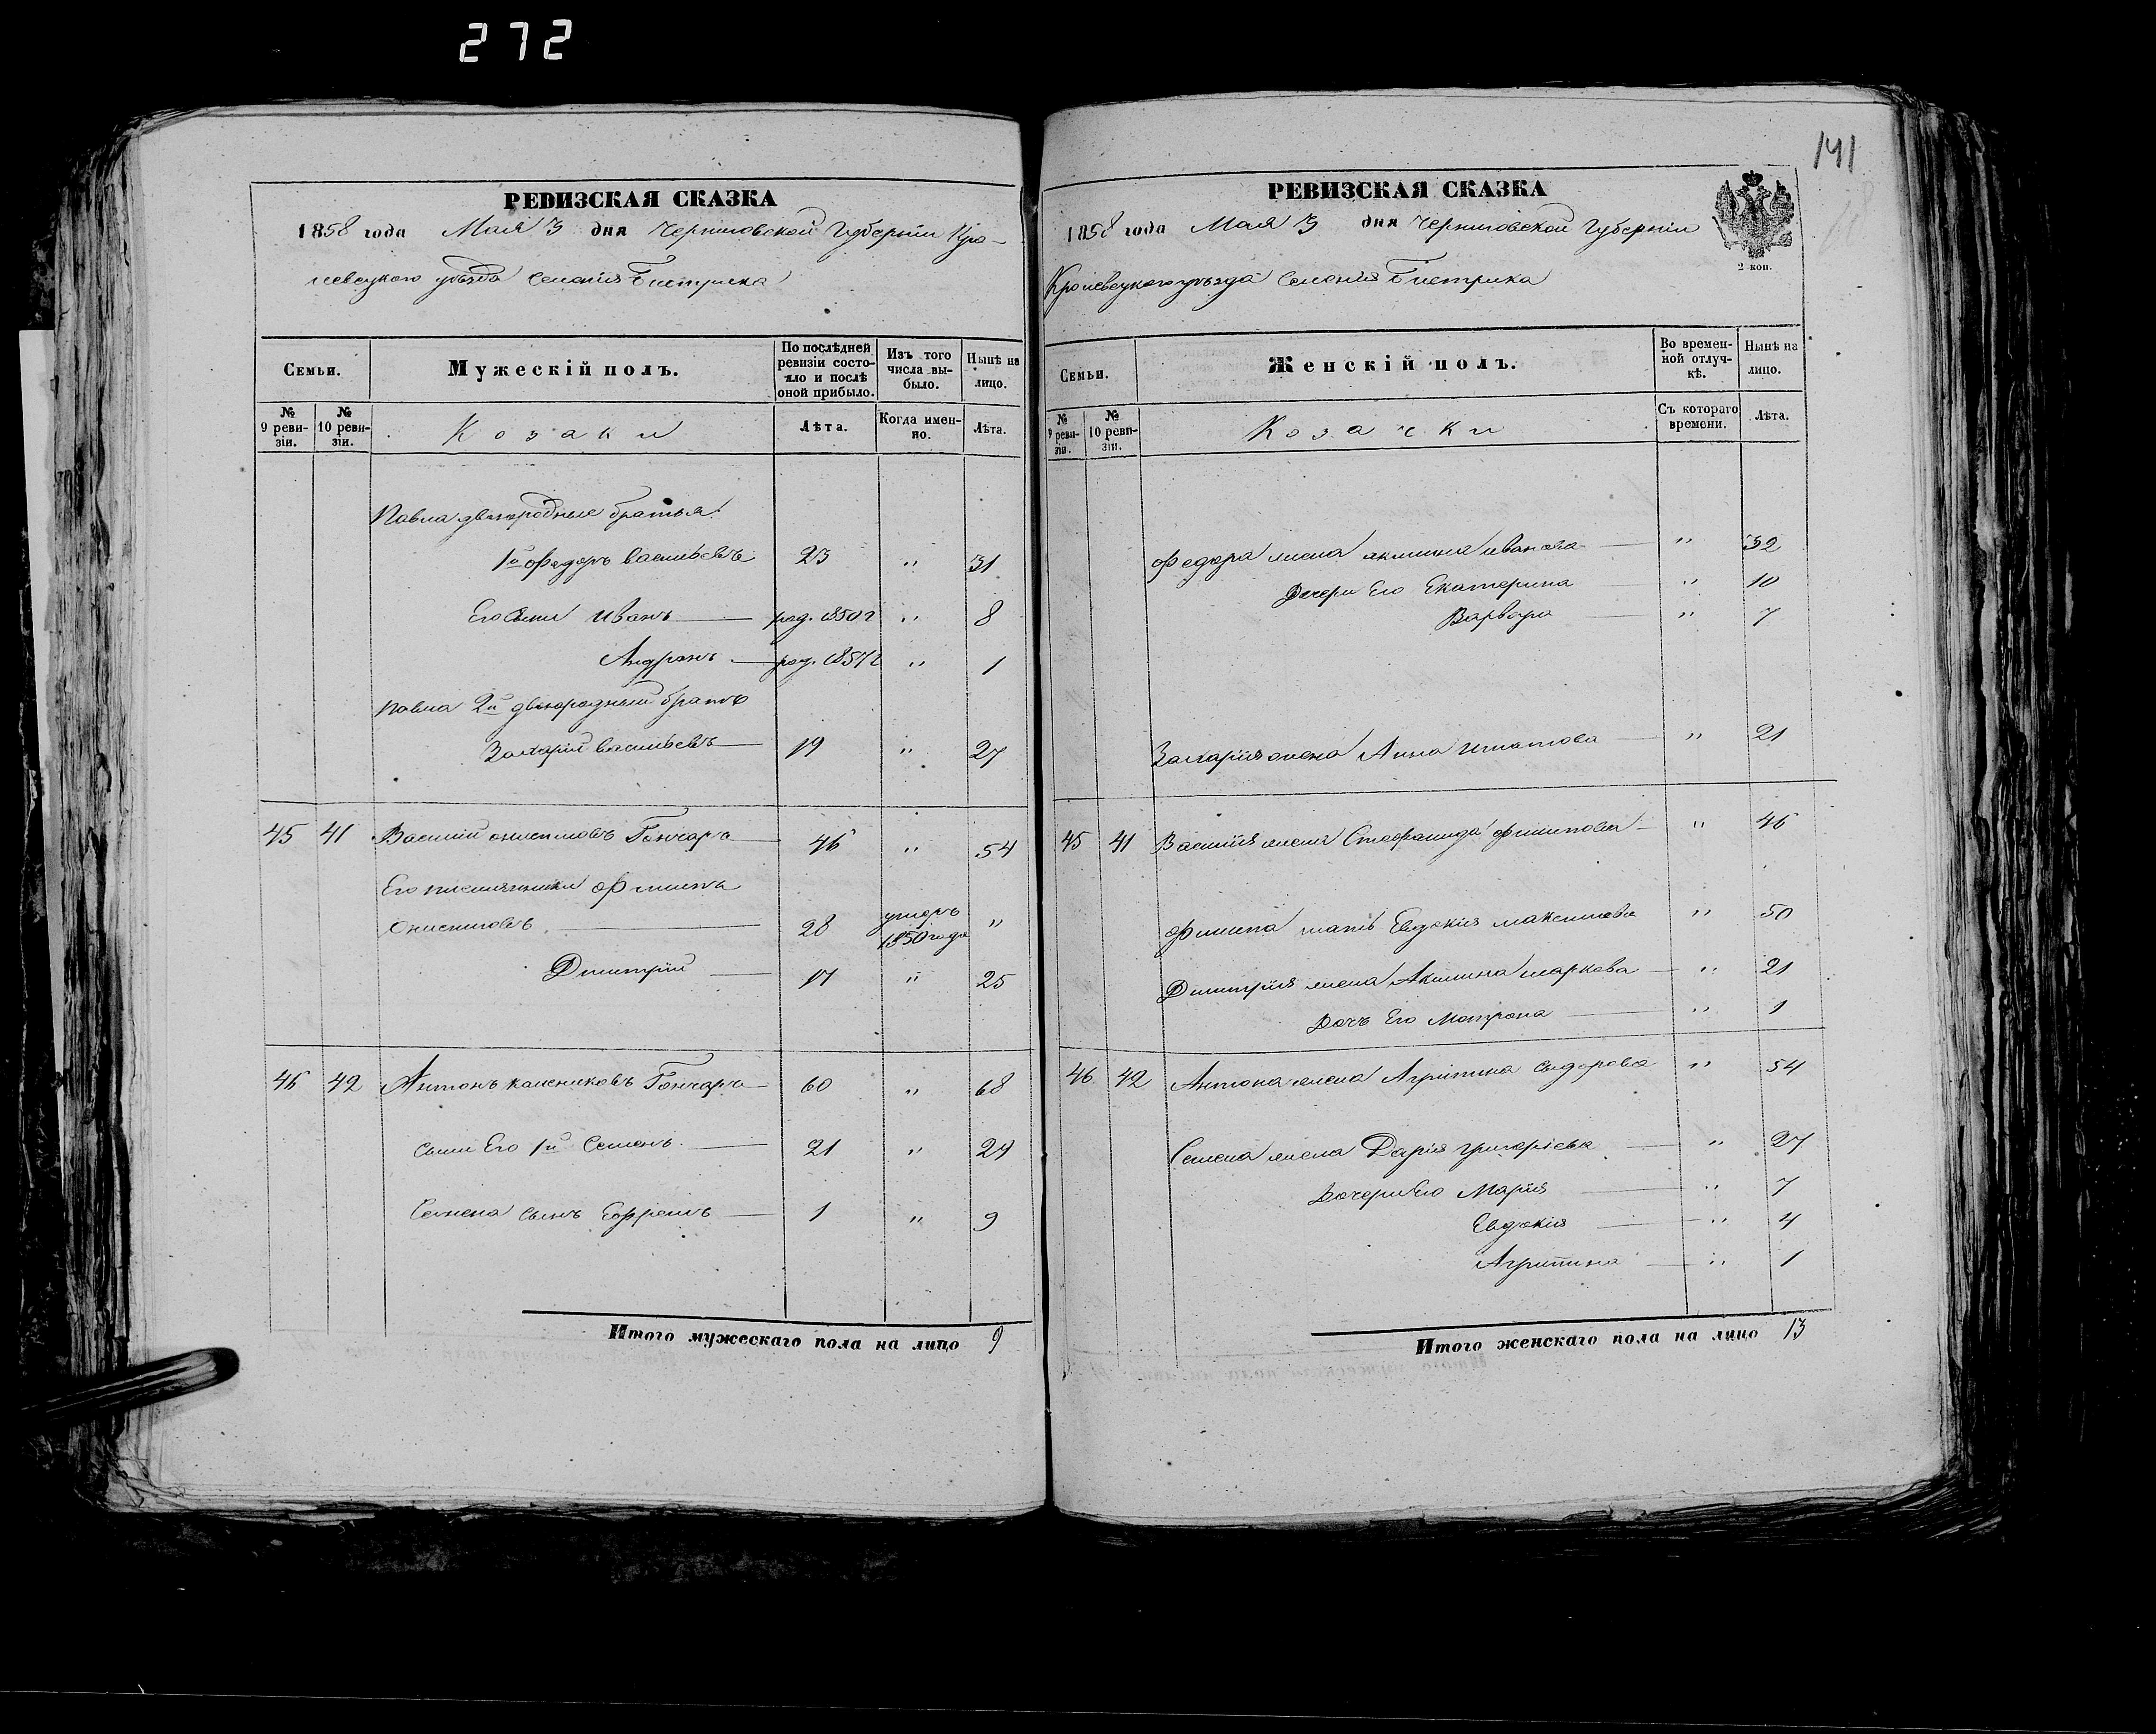 272
141
РЕВИЗСКАЯ СКАЗКА
1858 года Мая 3 дня Черниговской Губерніи Кро-
левецкого уѣзда Селенія Бистрика
Семьи.
Мужескій полъ.
По послѣдней ревизіи состояло и послѣ оной прибыло.
Изъ того числа выбыло.
Нынѣ на лицо.
№ 9 ревизіи.
№ 10 ревизіи.
Козаки
Лѣта.
Когда именно.
Лѣта.
Павла двоюродные братья:
1й Федоръ Васильевъ 23 " 31
Его Сыни Иванъ род. 1850 г " 8
Андрей род. 1857 г " 1
Павла 2й двоюродный братъ
Захарій Васильевъ 19 " 27
45 41 Василій Онисимовъ Гончаръ 46 " 54
Его племянники Филипъ
Онисимовъ 28 умеръ 1850 года "
Димитрій 17 " 25
46 42 Антонъ Колениковъ Гончаръ 60 " 68
Сыни Его 1й Семенъ 21 " 29
Семена Сынъ Ефремъ 1 " 9
Итого мужескаго пола на лицо 9
РЕВИЗСКАЯ СКАЗКА
1858 года Мая 3 дня Черниговской Губерніи
Кролевецкого уѣзда Селенія Бистрика
2 коп.
Семьи.
Женскій полъ.
Во временной отлучкѣ.
Нынѣ на лицо.
№ 9 ревизіи.
№ 10 ревизіи.
Козачки
Съ котораго времени.
Лѣта.
Федора жена Акилина Иванова " 32
Дочери Его Екатерина " 10
Варвара " 7
Захарія жена Анна Игнатова " 21
45 41 Василія жена Стефанида Филипова " 46
Филипа мать Евдокія Максимова " 50
Димитрія жена Акилина Маркова " 21
Дочь Его Матрона " 1
46 42 Антона жена Агрипина Сидорова " 54
Семена жена Дарія Григоріева " 27
Дочери Его Марія " 7
Евдокія " 4
Агрипина " 1
Итого женскаго пола на лицо 13